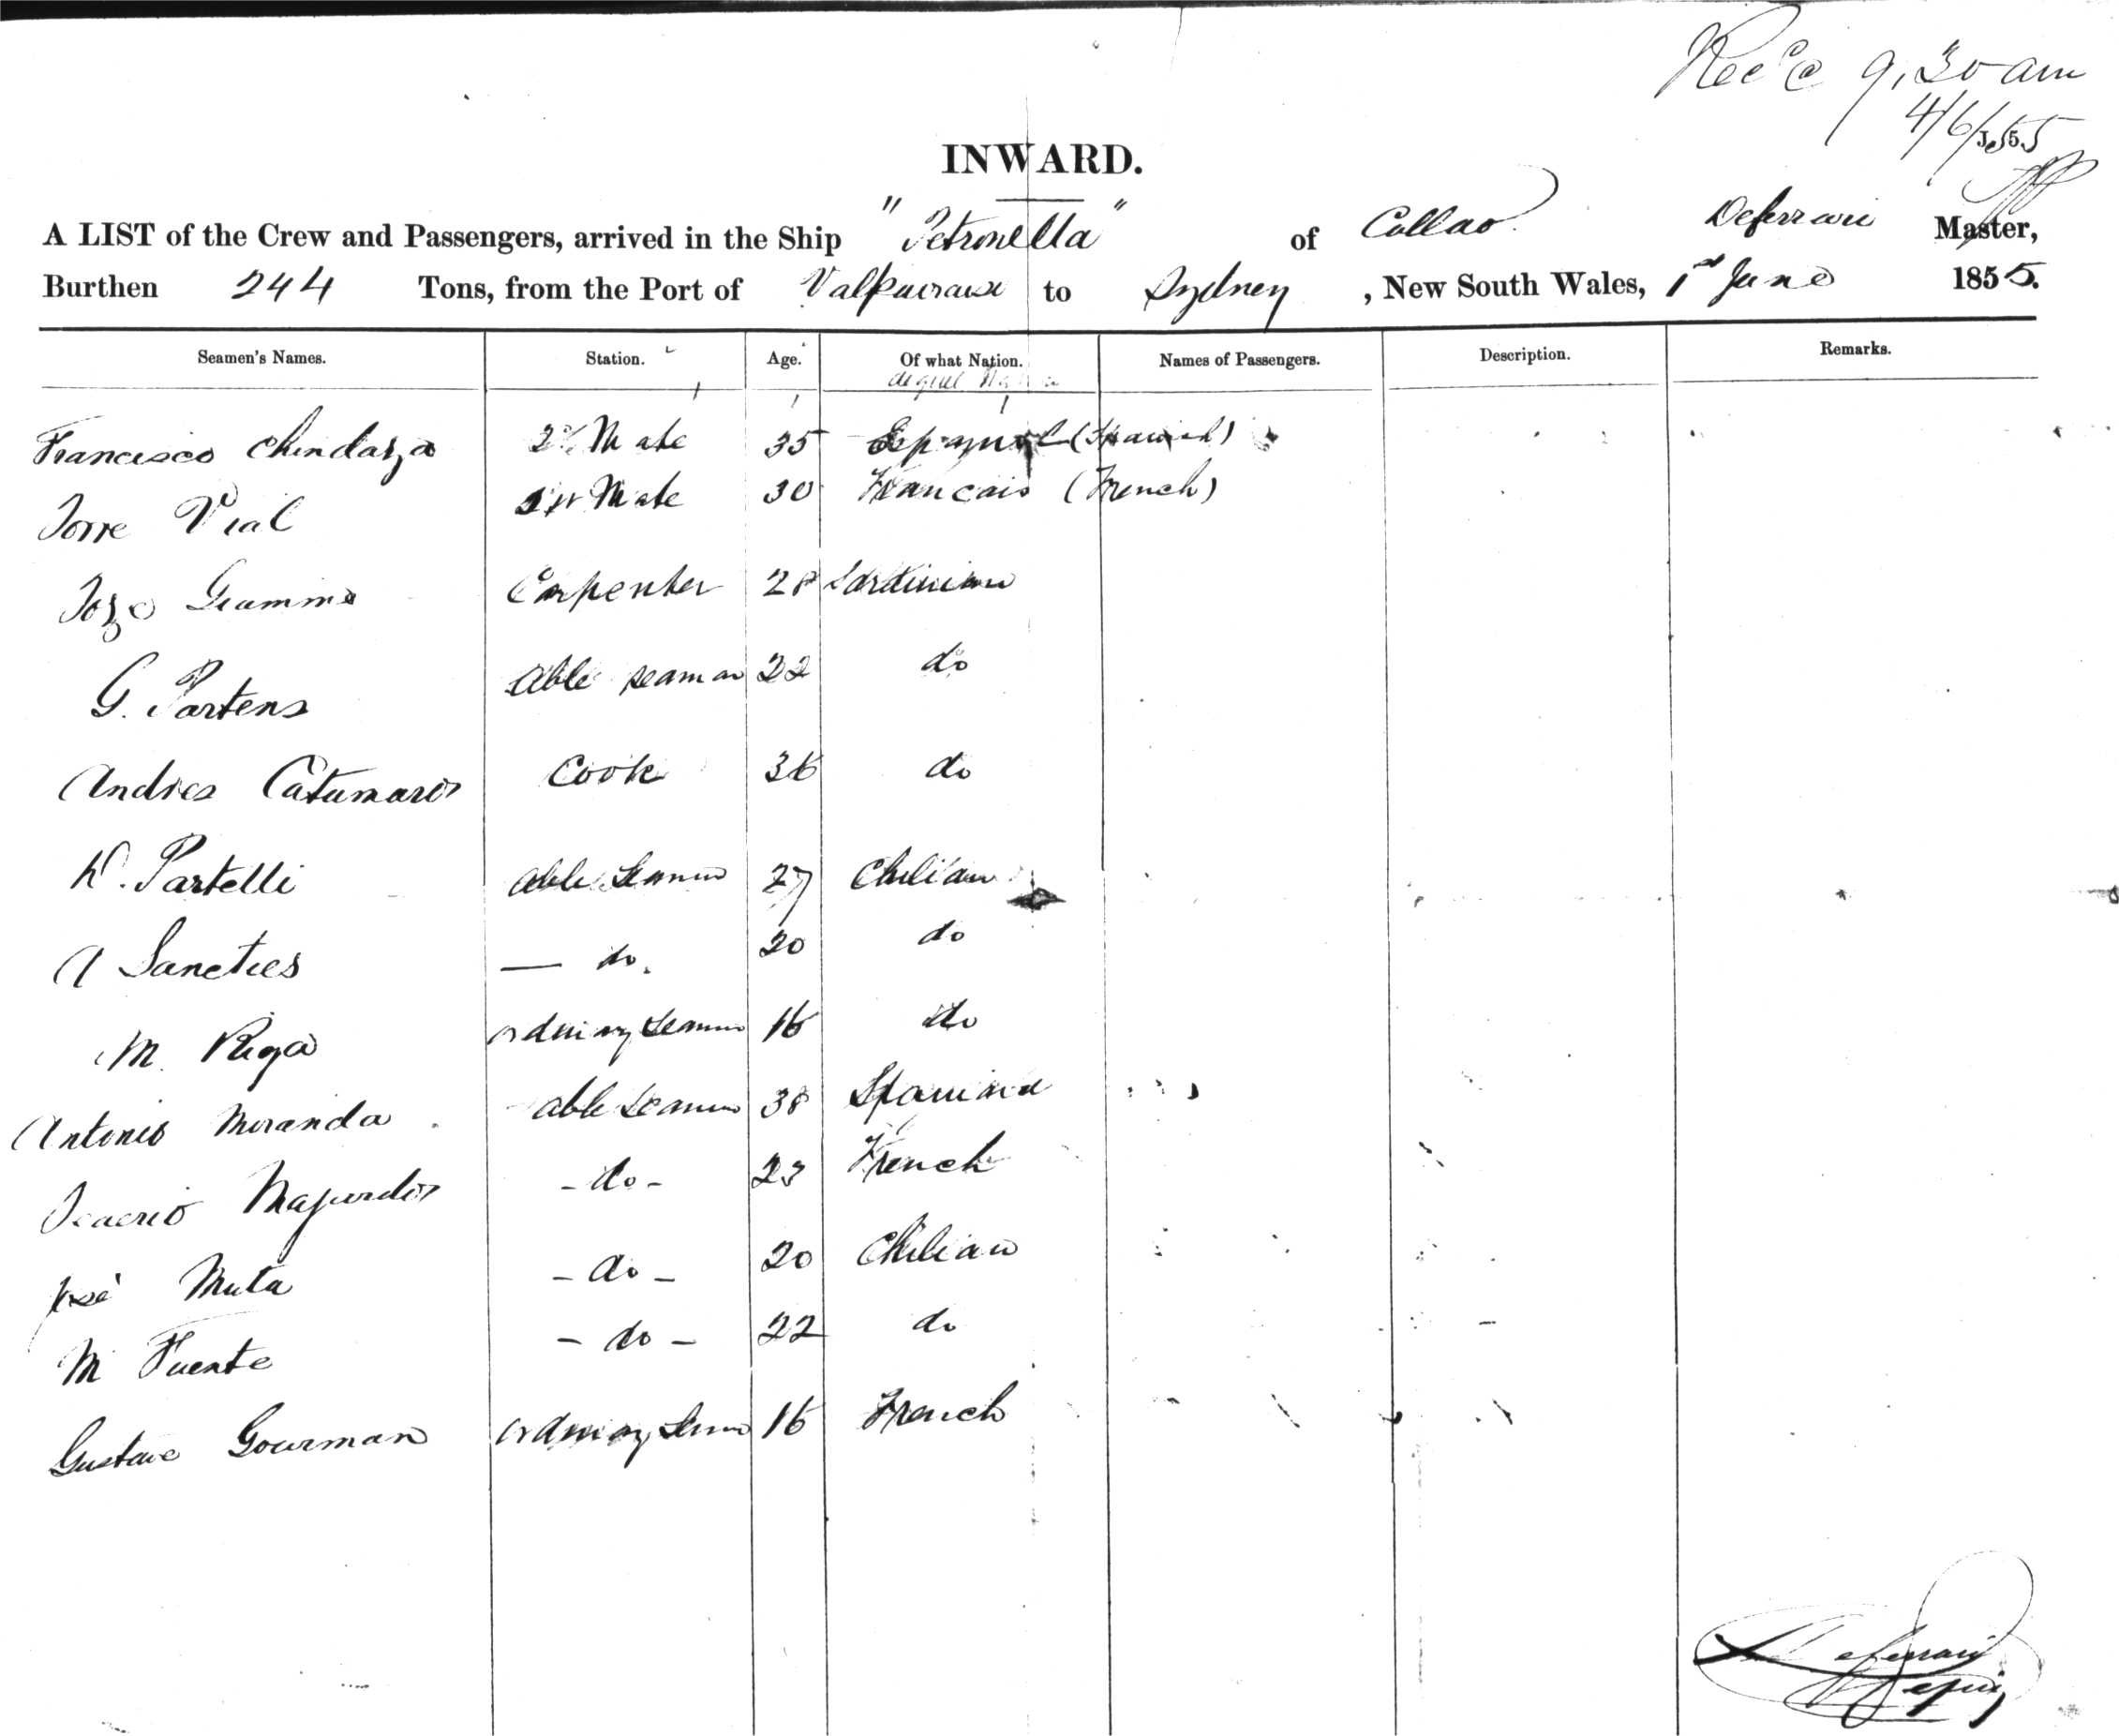 Rec'd 9,30 am
4/6/1855
INWARD.
A LIST of the Crew and Passengers, arrived in the Ship "Petronella" of Callao Deferrari Master,
Burthen 244 Tons, from the Port of Valparaiso to Sydney, New South Wales, 1st June 1855.
Seamen's Names. Station. Age. Of what Nation. Names of Passengers. Description. Remarks.
Francisco 2d Mate 35 Espanol (Spanish)
Vial 1st Mate 30 Francais (French)
Carpenter 28 Sardinian
G. Partens Able Seaman 22 do
Andres Cook 36 do
D. Partelli able Seaman 27 Chilian
A — do. 20 do
M. ordinary Seaman 16 do
Antonio Miranda able Seaman 38 Spaniard
- do - 23 French
José Muta - do - 20 Chilian
M Fuente - do - 22 do
Gustave Gourman ordinary Seaman 16 French
Deferrari